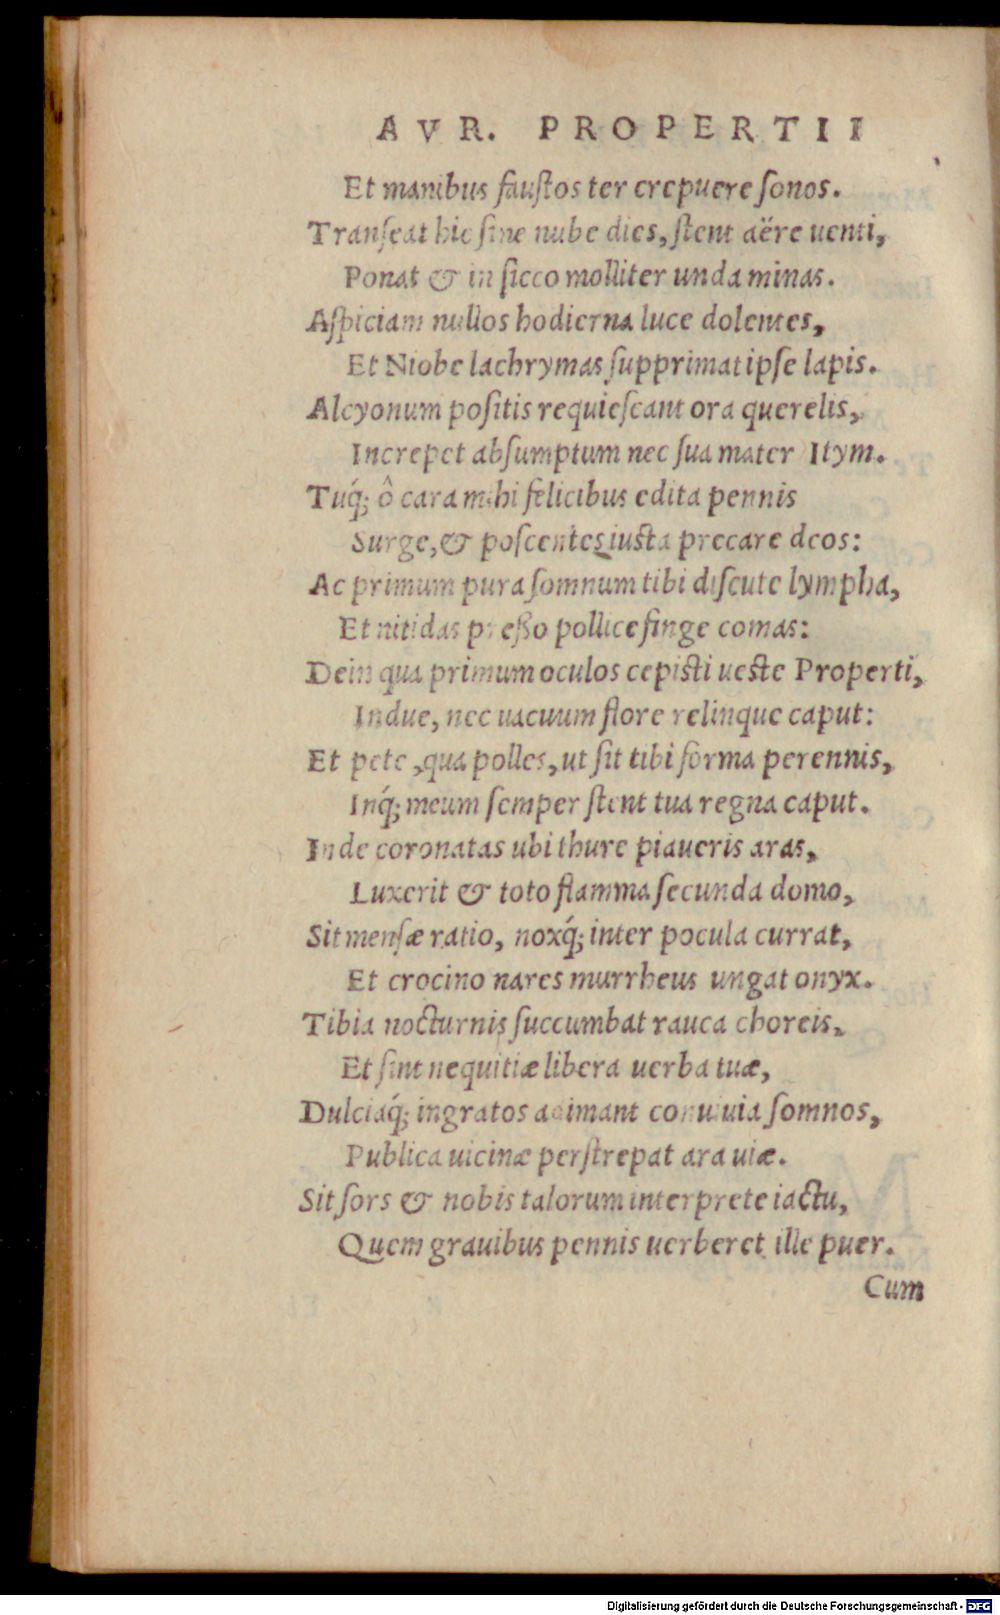 AVR. PROPERTII
Et manibus faustos ter crepuere sonos.
Transeat hic sine nube dies, stent aëre uenti,
Ponat & in sicco molliter unda minas.
Aspiciam nullos hodierna luce dolentes,
Et Niobe lachrymas supprimat ipse lapis.
Alcyonum positis requiescant ora querelis,
Increpet absumptum nec sua mater Itym.
Tuq́; ô cara mihi felicibus edita pennis
Surge, & poscentes iusta precare deos:
Ac primum pura somnum tibi discute lympha,
Et nitidas presso pollice finge comas:
Dein qua primum oculos cepisti ueste Properti,
Indue, nec uacuum flore relinque caput:
Et pete, qua polles, ut sit tibi forma perennis,
Inq́; meum semper stent tua regna caput.
Inde coronatas ubi thure piaueris aras,
Luxerit & toto flamma secunda domo,
Sit mensæ ratio, noxq́; inter pocula currat,
Et crocino nares murrheus ungat onyx.
Tibia nocturnis succumbat rauca choreis,
Et sint nequitiæ libera uerba tuæ,
Dulciaq́; ingratos adimant conuiuia somnos,
Publica uicinæ perstrepat ara uiæ.
Sit sors & nobis talorum interprete iactu,
Quem grauibus pennis uerberet ille puer.
Cum
Digitalisierung gefördert durch die Deutsche Forschungsgemeinschaft - DFG